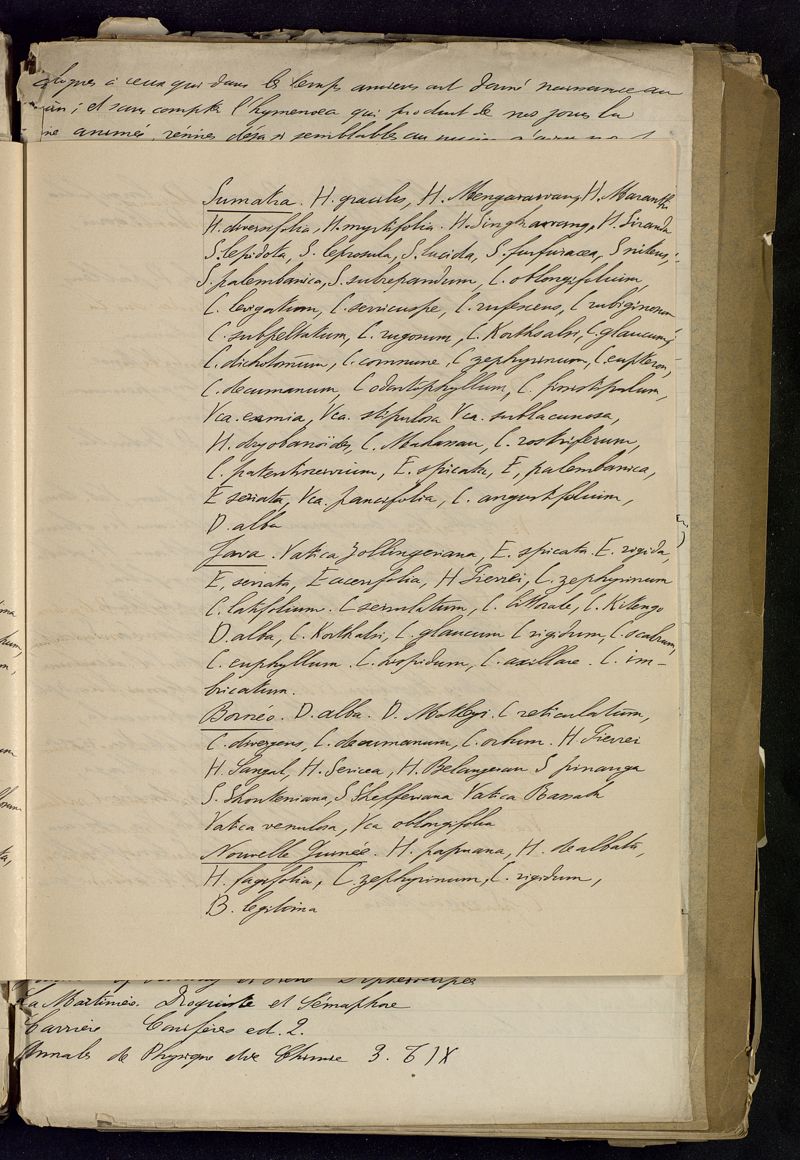 à ceux qui dans les temps anciens ont donné naissance au
; et sans compter l'hymenoea qui produit de nos jours la
animée, résines déjà si semblables au
Sumatra. H. gracilis, H. Mengarawang, H. Maranti
H. diversifolia, H. myrtifolia. H. Singkawang, H. Siranda
S. lepidota, S. leprosula, S. lucida, S. furfuracea, S nitens,
S. palembanica, S. subrepandum, C. oblongifolium,
C. levigatum, C. serricuspe, C. rufescens, C rubiginosum
C. subpeltatum, C. rugosum, C. Korthalsi, C. glaucum,
C. dichotomum, C. commune, C zephyrinum, C. eupteron,
C. decumanum, C odontophyllum, C. fonstipulum,
Vca. eximia, Vca. stipulosa Vca. sublacunosa,
H. dryobanoïdes, C. Madassau, C. rostriferum,
C. patentinervium, E. spicata, E. palembanica,
E seriata, Vca. pancifolia, C. angustifolium,
D. alba
Java. Vatica Zollingeriana, E. spicata. E. rigida,
E. seriata, E acerifolia, H Pierrei, C. zephyrinum
C. latifolium. C serrulatum, C. littorale, C. Kitengo
D. alba, C. Korthalsi, C. glaucum C rigidum, C. scabrum,
C. euphyllum. C. hispidum, C. axillare. C. im-
bricatum.
Bornéo. D. alba. D. Motleyi. C reticulatum,
C. divergens, C. decumanum, C. ortum. H. Pierrei
H. Sangal, H. Sericea, H. Belangeran S pinanga
S. Skonteniana, S Shefferiana Vatica Bassak
Vatica venulosa, Vca oblongifolia
Nouvelle Guinée. H. papuana, H. dealbata,
H. fagifolia, C. zephyrinum, C. rigidum,
B. legitima
La Martinée. Droguiste et Sémaphore
Carrière Conifères ed. 2.
Annales de Physique et de Chimie 3. T IX